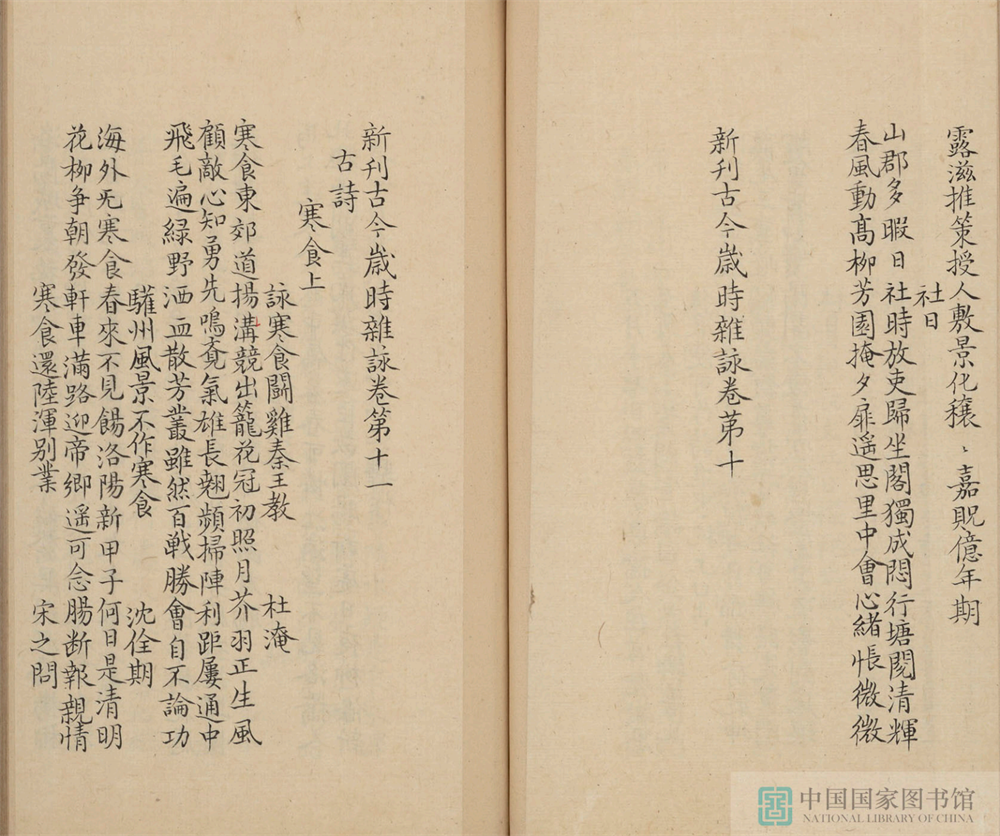 露滋推策授人敷景化穰〻嘉貺億年期
社日
山郡多暇日社時放吏歸坐閣獨成悶行塘閱清輝
春風動髙柳芳園掩夕扉遥思里中會心緒悵微微
新刊古今歳時雜詠卷苐十
新刊古今歳時雜詠卷第十一
古詩
寒食上
詠寒食鬬雞秦王教 杜淹
寒食東郊道揚溝競出籠花冠初照月芥羽正生風
顧敵心知勇先鳴覔氣雄長翹頻掃陣利距屢通中
飛毛遍緑野洒血散芳叢雖然百戦勝會自不論功
驩州風景不作寒食 沈佺期
海外旡寒食春來不見餳洛陽新甲子何日是清明
花柳争朝發軒車滿路迎帝鄉遥可念腸断報親情
寒食還陸渾别業 宋之問
中国国家图书馆
NATIONAL LIBRARY OF CHINA